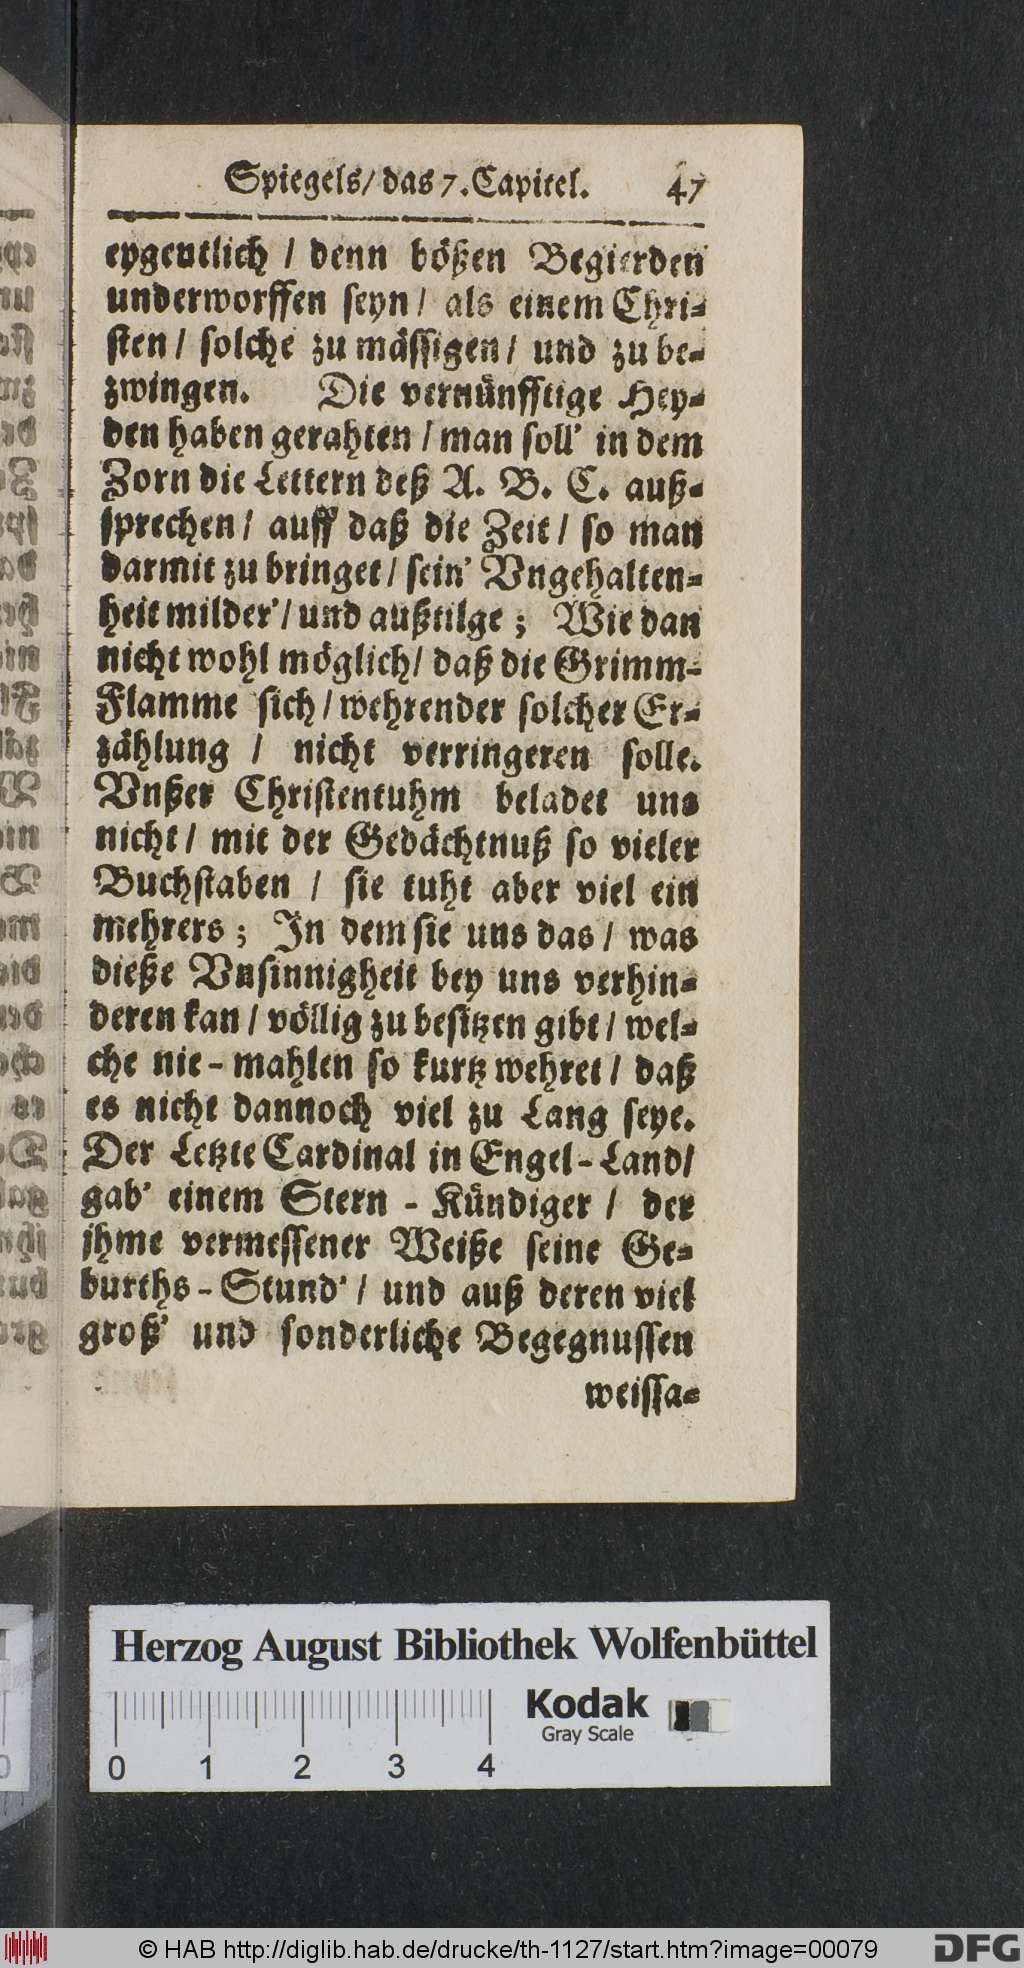 Spiegels/ das 7. Capitel. 47
eygentlich / denn bößen Begierden
underworffen seyn / als einem Chri-
sten / solche zu mässigen / und zu be-
zwingen. Die vernünfftige Hey-
den haben gerahten / man soll' in dem
Zorn die Lettern deß A. B. C. auß-
sprechen / auff daß die Zeit / so man
darmit zu bringet / sein' Vngehalten-
heit milder' / und außtilge ; Wie dan
nicht wohl möglich / daß die Grimm-
Flamme sich / wehrender solcher Er-
zählung / nicht verringeren solle.
Vnßer Christentuhm beladet uns
nicht / mit der Gedächtnuß so vieler
Buchstaben / sie tuht aber viel ein
mehrers ; In dem sie uns das / was
dieße Vnsinnigheit bey uns verhin-
deren kan / völlig zu besitzen gibt / wel-
che nie-mahlen so kurtz wehret / daß
es nicht dannoch viel zu Lang seye.
Der Letzte Cardinal in Engel-Land /
gab' einem Stern-Kündiger / der
jhme vermessener Weiße seine Ge-
burths-Stund' / und auß deren viel
groß' und sonderliche Begegnussen
weissa-
Herzog August Bibliothek Wolfenbüttel
Kodak
Gray Scale
0 1 2 3 4
© HAB http://diglib.hab.de/drucke/th-1127/start.htm?image=00079
DFG